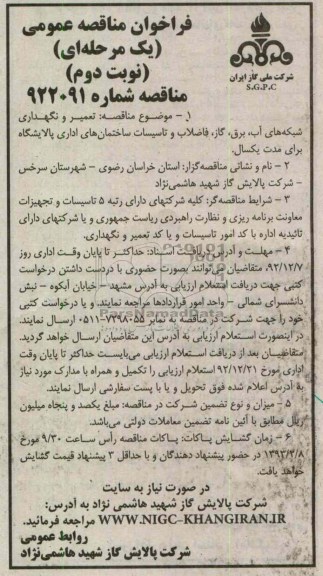 فراخوان مناقصه عمومی
(یک مرحله‌ای)
(نوبت دوم)
مناقصه شماره ۹۲۲۰۹۱
شرکت ملی گاز ایران
S.G.P.C
۱ – موضوع مناقصه: تعمیر و نگهداری
شبکه‌های آب، برق، گاز، فاضلاب و تاسیسات ساختمان‌های اداری پالایشگاه
برای مدت یکسال.
۲ – نام و نشانی مناقصه‌گزار: استان خراسان رضوی – شهرستان سرخس
– شرکت پالایش گاز شهید هاشمی‌نژاد
۳ – شرایط مناقصه‌گر: کلیه شرکتهای دارای رتبه ۵ تاسیسات و تجهیزات
معاونت برنامه ریزی و نظارت راهبردی ریاست جمهوری و یا شرکتهای دارای
تائیدیه اداره با کد امور تاسیسات و یا کد تعمیر و نگهداری.
۴ – مهلت و آدرس دریافت اسناد: حداکثر تا پایان وقت اداری روز
۹۲/۱۲/۷ متقاضیان می‌توانند بصورت حضوری با دردست داشتن درخواست
کتبی جهت دریافت استعلام ارزیابی به آدرس مشهد – خیابان آبکوه – نبش
دانشسرای شمالی – واحد امور قراردادها مراجعه نمایند و یا درخواست کتبی
خود را جهت شرکت در مناقصه به نمابر ارسال نمایند.
در اینصورت استعلام ارزیابی به آدرس این متقاضیان ارسال خواهد گردید.
متقاضیان بعد از دریافت استعلام ارزیابی می‌بایست حداکثر تا پایان وقت
اداری مورخ ۹۲/۱۲/۲۱ استعلام ارزیابی را تکمیل و همراه با مدارک مورد نیاز
به آدرس اعلام شده فوق تحویل و یا با پست سفارشی ارسال نمایند.
۵ – میزان و نوع تضمین شرکت در مناقصه: مبلغ یکصد و پنجاه میلیون
ریال مطابق با آئین نامه تضمین معاملات دولتی می‌باشد.
۶ – زمان گشایش پاکات: پاکات مناقصه رأس ساعت ۹/۳۰ مورخ
۱۳۹۳/۳/۸ در حضور پیشنهاد دهندگان و با حداقل ۳ پیشنهاد قیمت گشایش
خواهد یافت.
در صورت نیاز به سایت
شرکت پالایش گاز شهید هاشمی نژاد به آدرس:
WWW.NIGC-KHANGIRAN.IR مراجعه فرمائید.
روابط عمومی
شرکت پالایش گاز شهید هاشمی‌نژاد